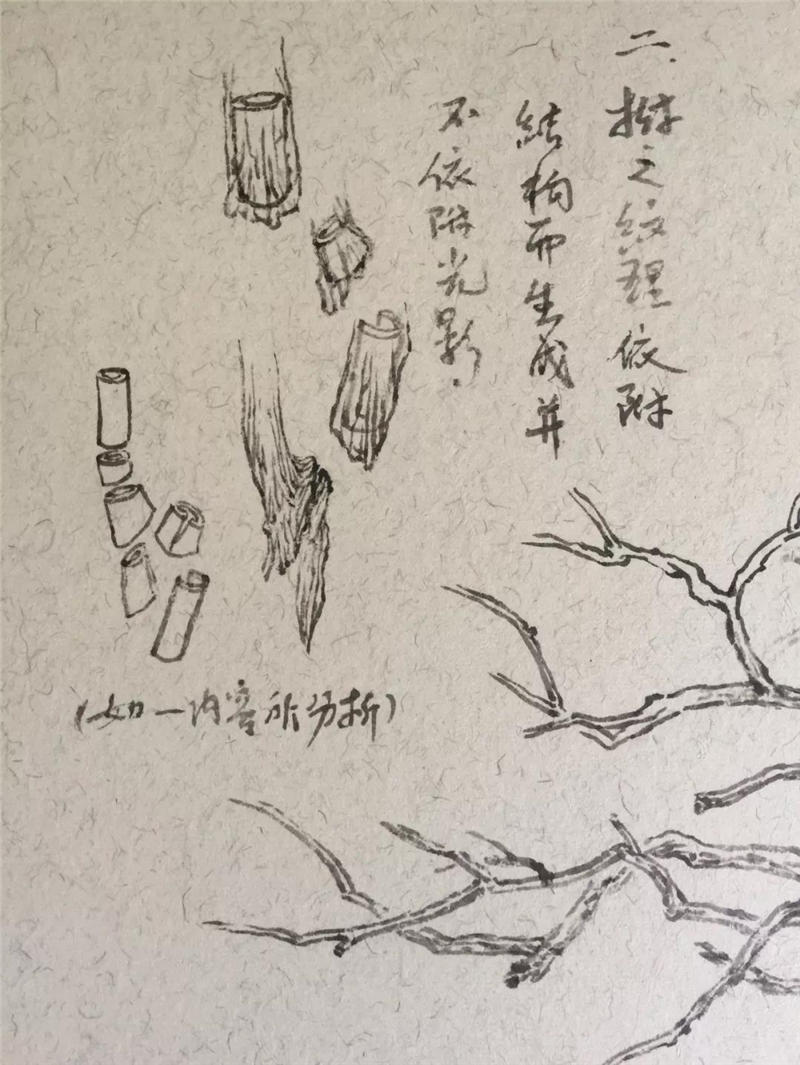 二、树之紋理依附
結构而生成并
不依附光影.
(如一内容所分析)